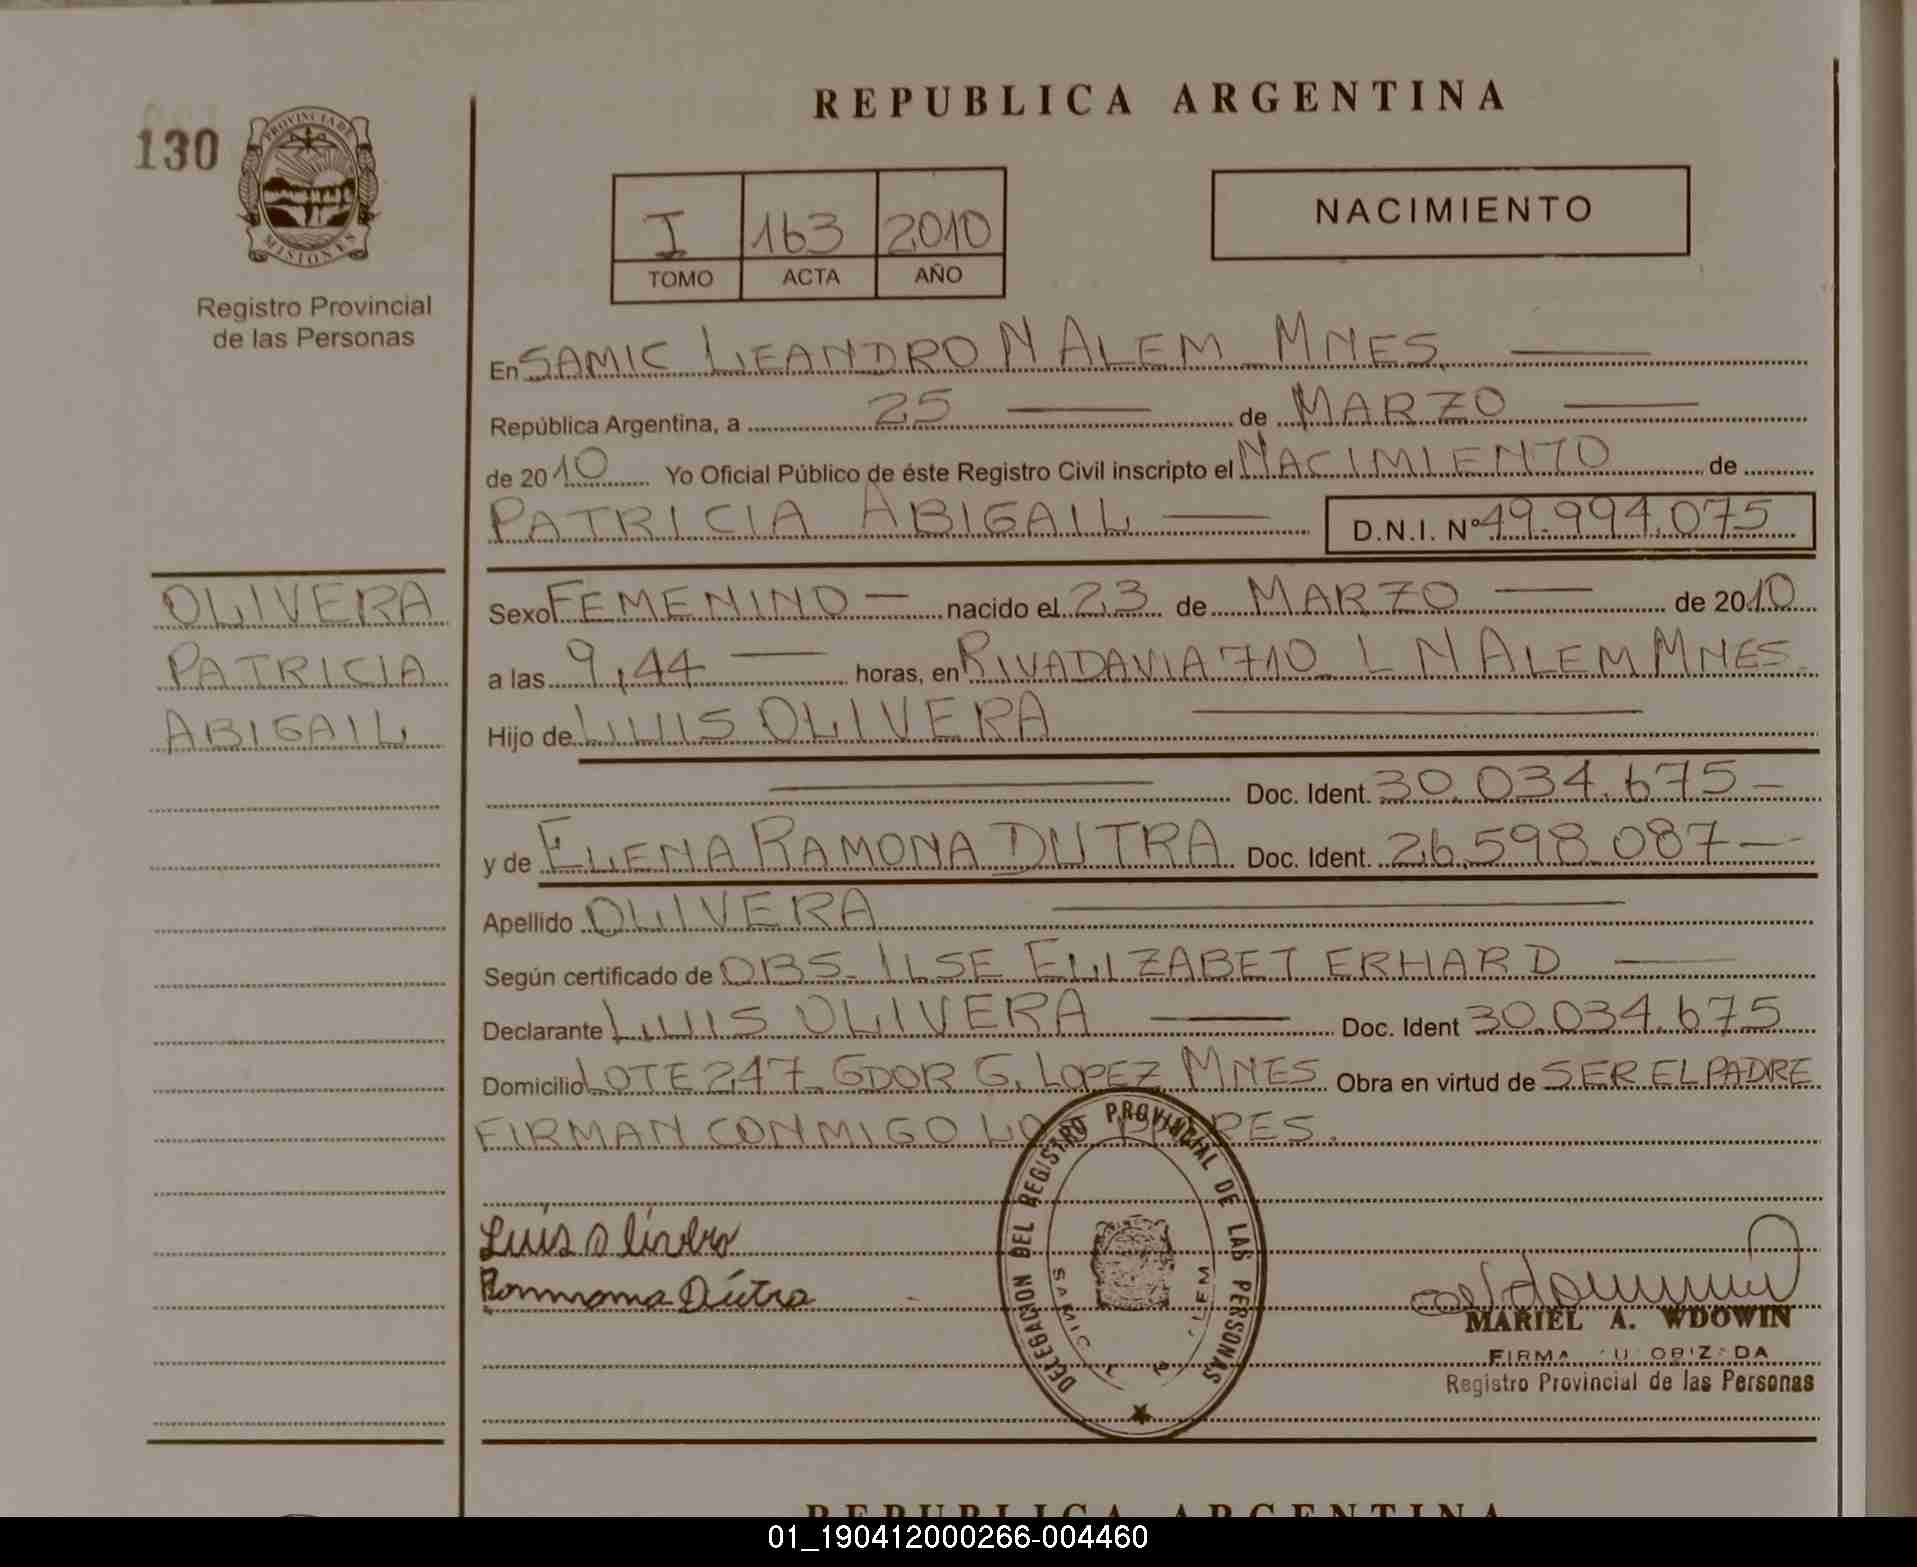 REPUBLICA ARGENTINA
130
PROVINCIA DE
MISIONES
Registro Provincial
de las Personas
I 163 2010
TOMO ACTA AÑO
NACIMIENTO
En SAMIC LEANDRO N ALEM MNES
República Argentina, a 25 de MARZO
de 2010 Yo Oficial Público de éste Registro Civil inscripto el NACIMIENTO de
PATRICIA ABIGAIL D.N.I. Nº 49.994.075
OLIVERA
PATRICIA
ABIGAIL
Sexo FEMENINO nacido el 23 de MARZO de 2010
a las 9,44 horas, en RIVADAVIA 710 L N ALEM MNES
Hijo de LUIS OLIVERA
Doc. Ident. 30.034.675
y de ELENA RAMONA DUTRA Doc. Ident. 26.598.087
Apellido OLIVERA
Según certificado de OBS. ILSE ELIZABET ERHARD
Declarante LUIS OLIVERA Doc. Ident 30.034.675
Domicilio LOTE 247 GDOR G. LOPEZ MNES Obra en virtud de SER EL PADRE
FIRMAN CONMIGO
DELEGACION DEL REGISTRO PROVINCIAL DE LAS PERSONAS
SAMIC
Luis
Dutra
MARIEL A. WDOWIN
FIRMA
Registro Provincial de las Personas
REPUBLICA ARGENTINA
01_190412000266-004460